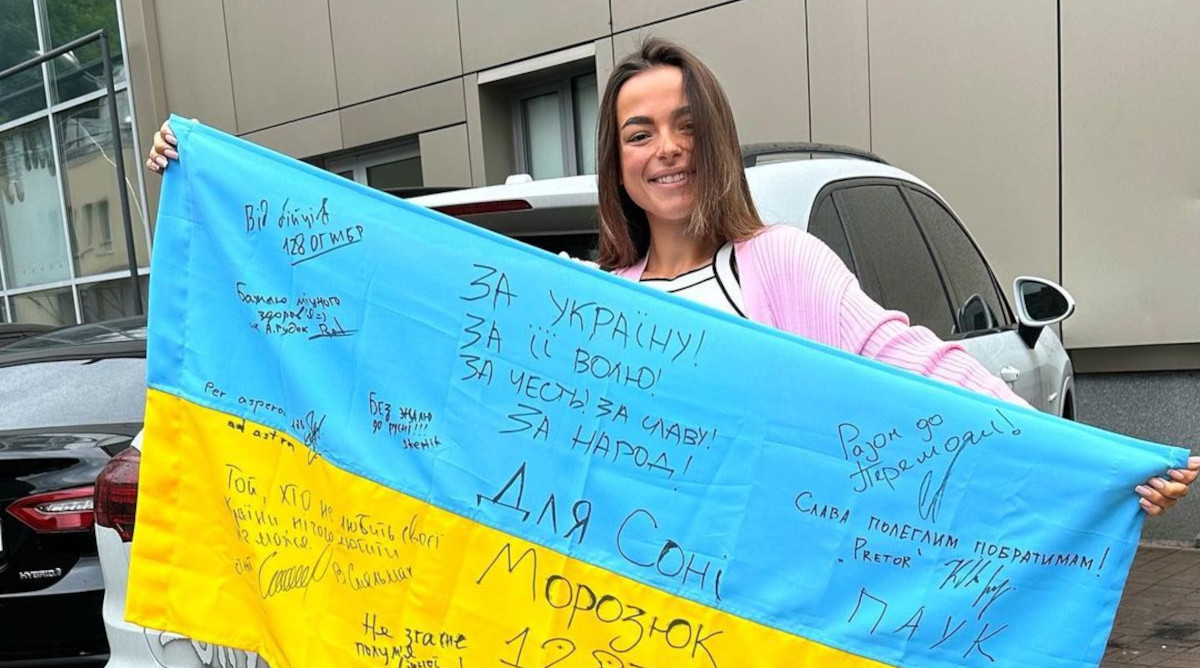 Від бійців
128 ОГШБР
Бажаю міцного
здоров'я =)
Per aspera
ad astra
Без жалю
до русні!!!
ЗА УКРАЇНУ!
ЗА ЇЇ ВОЛЮ!
ЗА ЧЕСТЬ! ЗА СЛАВУ!
ЗА НАРОД!
Для Соні
Морозюк
Той, хто не любить своєї
країни, нічого любити
не може.
Не згасне
полум'я
Разом до
Перемоги!
Слава полеглим побратимам!
"Pretor"
ПАУК
HYBRID